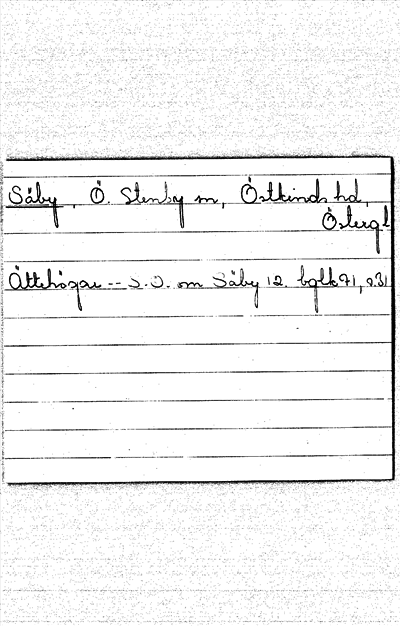 Säby, Ö. Stenby sn, Östkinds hd,
Östergl
Ättehögar -- S.O. om Säby 12. bglk 71, s.31